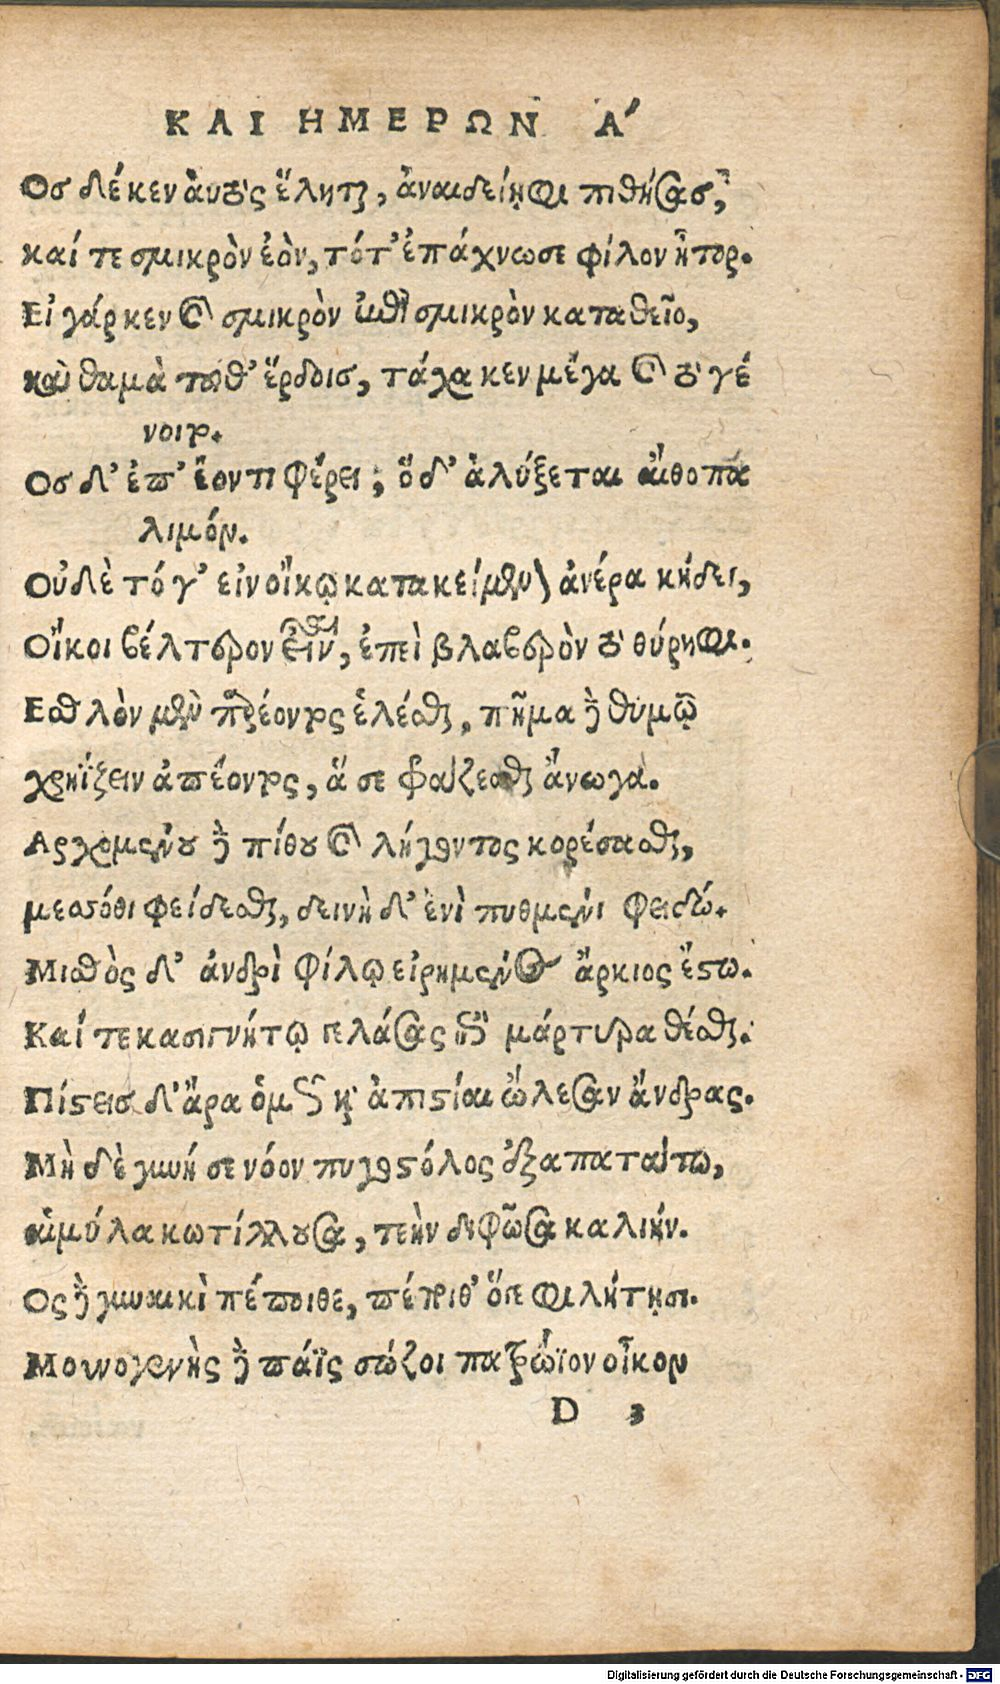 ΚΑΙ ΗΜΕΡΩΝ Α'
Οσ δέ κεν αὐτὸς ἕληται, ἀναιδείηφι πιθήσασ,
καί τε σμικρὸν ἐὸν, τότ' ἐπάχνωσε φίλον ἦτορ.
Εἰ γάρ κεν καὶ σμικρὸν ἐπὶ σμικρὸν καταθεῖο,
καὶ θαμὰ τοῦθ' ἕρδοισ, τάχα κεν μέγα καὶ τὸ γέ
νοιτο.
Οσ δ' ἐπ' ἐόντι φέρει, ὅδ' ἀλύξεται αἴθοπα
λιμόν.
Οὐδὲ τό γ' εἰν οἴκῳ κατακείμενον ἀνέρα κήδει,
Οἴκοι βέλτερον εἶναι, ἐπεὶ βλαβερὸν τὸ θύρηφι.
Εσθλὸν μὲν παρεόντος ἑλέσθαι, πῆμα δὲ θυμῷ
χρηΐζειν ἀπεόντος, ἅ σε φράζεσθαι ἄνωγα.
Αρχομένου δὲ πίθου καὶ λήγοντος κορέσασθαι,
μεσσόθι φείδεσθαι, δεινὴ δ' ἐνὶ πυθμένι φειδώ.
Μισθὸς δ' ἀνδρὶ φίλῳ εἰρημένος ἄρκιος ἔστω.
Καί τε κασιγνήτῳ γελάσας ἐπὶ μάρτυρα θέσθαι.
Πίστεισ δ' ἄρα ὁμῶς καὶ ἀπιστίαι ὤλεσαν ἄνδρας.
Μὴ δὲ γυνή σε νόον πυγοστόλος ἐξαπατάτω,
αἱμύλα κωτίλλουσα, τεὴν διφῶσα καλιήν.
Ος δὲ γυναικὶ πέποιθε, πέποιθ' ὅγε φιλήτῃσι.
Μουνογενὴς δὲ πάϊς σώζοι πατρώϊον οἶκον
D 3
Digitalisierung gefördert durch die Deutsche Forschungsgemeinschaft - DFG